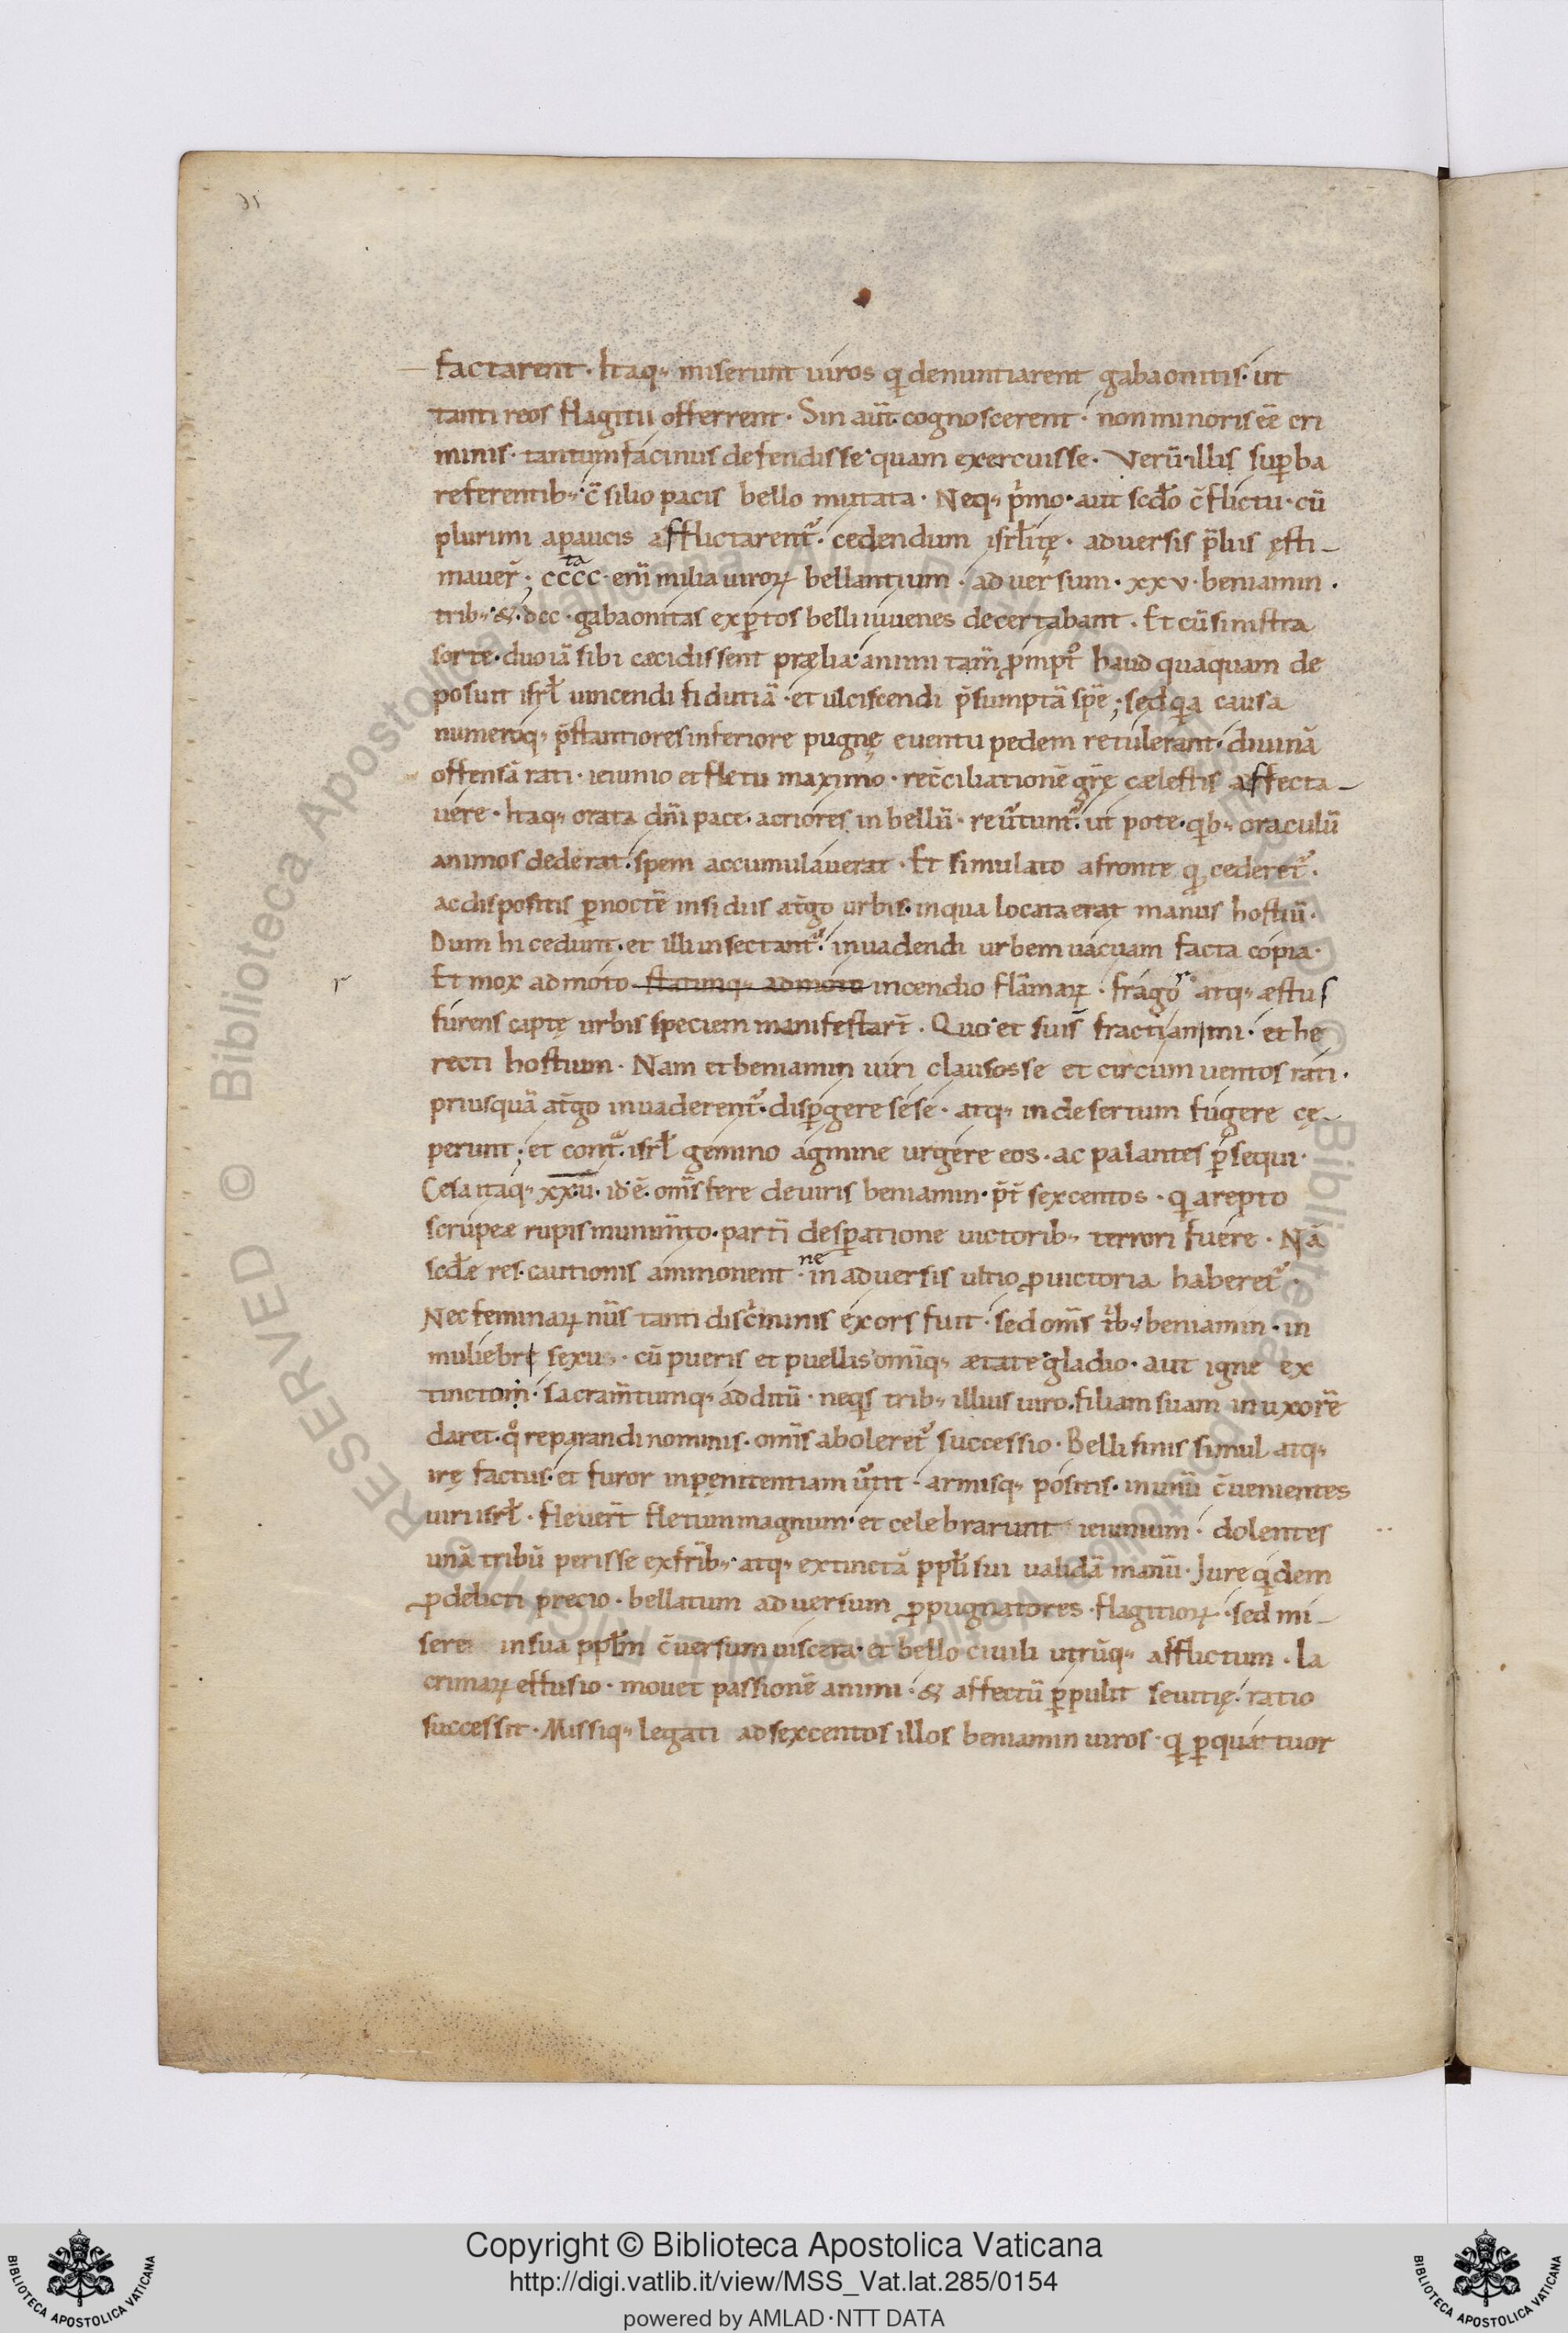 factarent · Itaq; miserunt uiros q denuntiarent gabaonitis · ut
tanti reos flagitii offerrent · Sin aūt cognoscerent · non minoris eē cri
minis · tantum facinus defendisse quam exercuisse · Verū illis suꝑba
referentib; · c̄silio pacis bello mutata · Neq; p̍mo · aut scd̄o c̄flictu · cū
plurimi apaucis afflictarent᷑ · cedendum isrl̄itę · aduersis p̄liis ęsti-
mauer̄ ; cccc ta · enī milia uiroꝝ bellantium · aduersum · xxv · beniamin ·
trib; · & · dcc · gabaonitas exꝑtos belli iuuenes decertabant · Et cū sinistra
sorte · duo iā sibi cæcidissent prælia · animi tam̄ ꝓmpt᷒ haud quaquam de
posuit isrl̄ uincendi fidutiā · et ulciscendi p̄sumptā spē ; sed qa causa
numeroq; p̄stantiores inferiore pugnę euentu pedem retulerant · diuinā
offensā rati · ieiunio et fletu maximo · rec̄ciliationē gr̄ę cælestis affecta-
uere · Itaq; orata dn̄i pace · acriores in bellū · reūtunt᷑ · ut pote · qb; oraculū
animos dederat · spem accumulauerat · Et simulato afronte q cederet᷑ ·
ac dispositis ꝑ noctē insidiis at̄go urbis · inqua locata erat manus hostiū ·
Dum hi cedunt · et illi insectant᷑ · inuadendi urbem uacuam facta copia ·
r Et mox admoto flatumq; admoto incendio flāmaꝝ · frago r atq; æstus
furens captę urbis speciem manifestar̄t · Quo et suis̄ fracti animi · et he
recti hostium · Nam et beniamin uiri clausos se et circum uentos rati ·
priusquā at̄go inuaderent᷑ · disꝑgere sese · atq; in desertum fugere cę-
perunt ; et contᷓ · isrl̄ gemino agmine urgere eos · ac palantes ꝑsequi ·
Cesa itaq; x̄x̄ · ū · id ē · om̄s fere de uiris beniamin · p̄t̄ sexcentos · q arepto
scrupeæ rupis munim̄to · partī desꝑatione uictorib; terrori fuere · Nā
scd̄æ res · cautionis ammonent · ne in aduersis ultio ꝓ uictoria haberet᷑ ·
Nec feminaꝝ nūs tanti disc̍minis exors fuit · sed om̄s t̍b; beniamin · in
muliebri sexu · cū pueris et puellis om̄iq; ætate gladio · aut igne ex
tinctom · sacram̄tumq; additū · neqs trib; illius uiro · filiam suam in uxorē
daret · q᷒ reparandi nominis · om̄is aboleret᷑ successio · Belli finis simul atq;
irę factus · et furor inpęnitentiam ūtit · armisq; positis · in unū c̄uenientes
uiri isrl̄ · fleuer̄t fletum magnum · et celebrarunt ieiunium · dolentes
unā tribū perisse exfrīb; · atq; extinctā ppl̄i sui ualidā manū · Jure qdem
ꝓ delicti precio · bellatum aduersum ꝓpugnatores · flagitioꝝ · sed mi-
sere in sua ppl̄m c̄uersum uiscera · et bello ciuili utrūq; afflictum · La
crimaꝝ effusio · mouet passionē animi · & affectū ꝑpulit seuitię · ratio
successit · Missiq; legati ad sexcentos illos beniamin uiros · q ꝑ quattuor
Copyright © Biblioteca Apostolica Vaticana
http://digi.vatlib.it/view/MSS_Vat.lat.285/0154
powered by AMLAD·NTT DATA
BIBLIOTECA APOSTOLICA VATICANA
BIBLIOTECA APOSTOLICA VATICANA